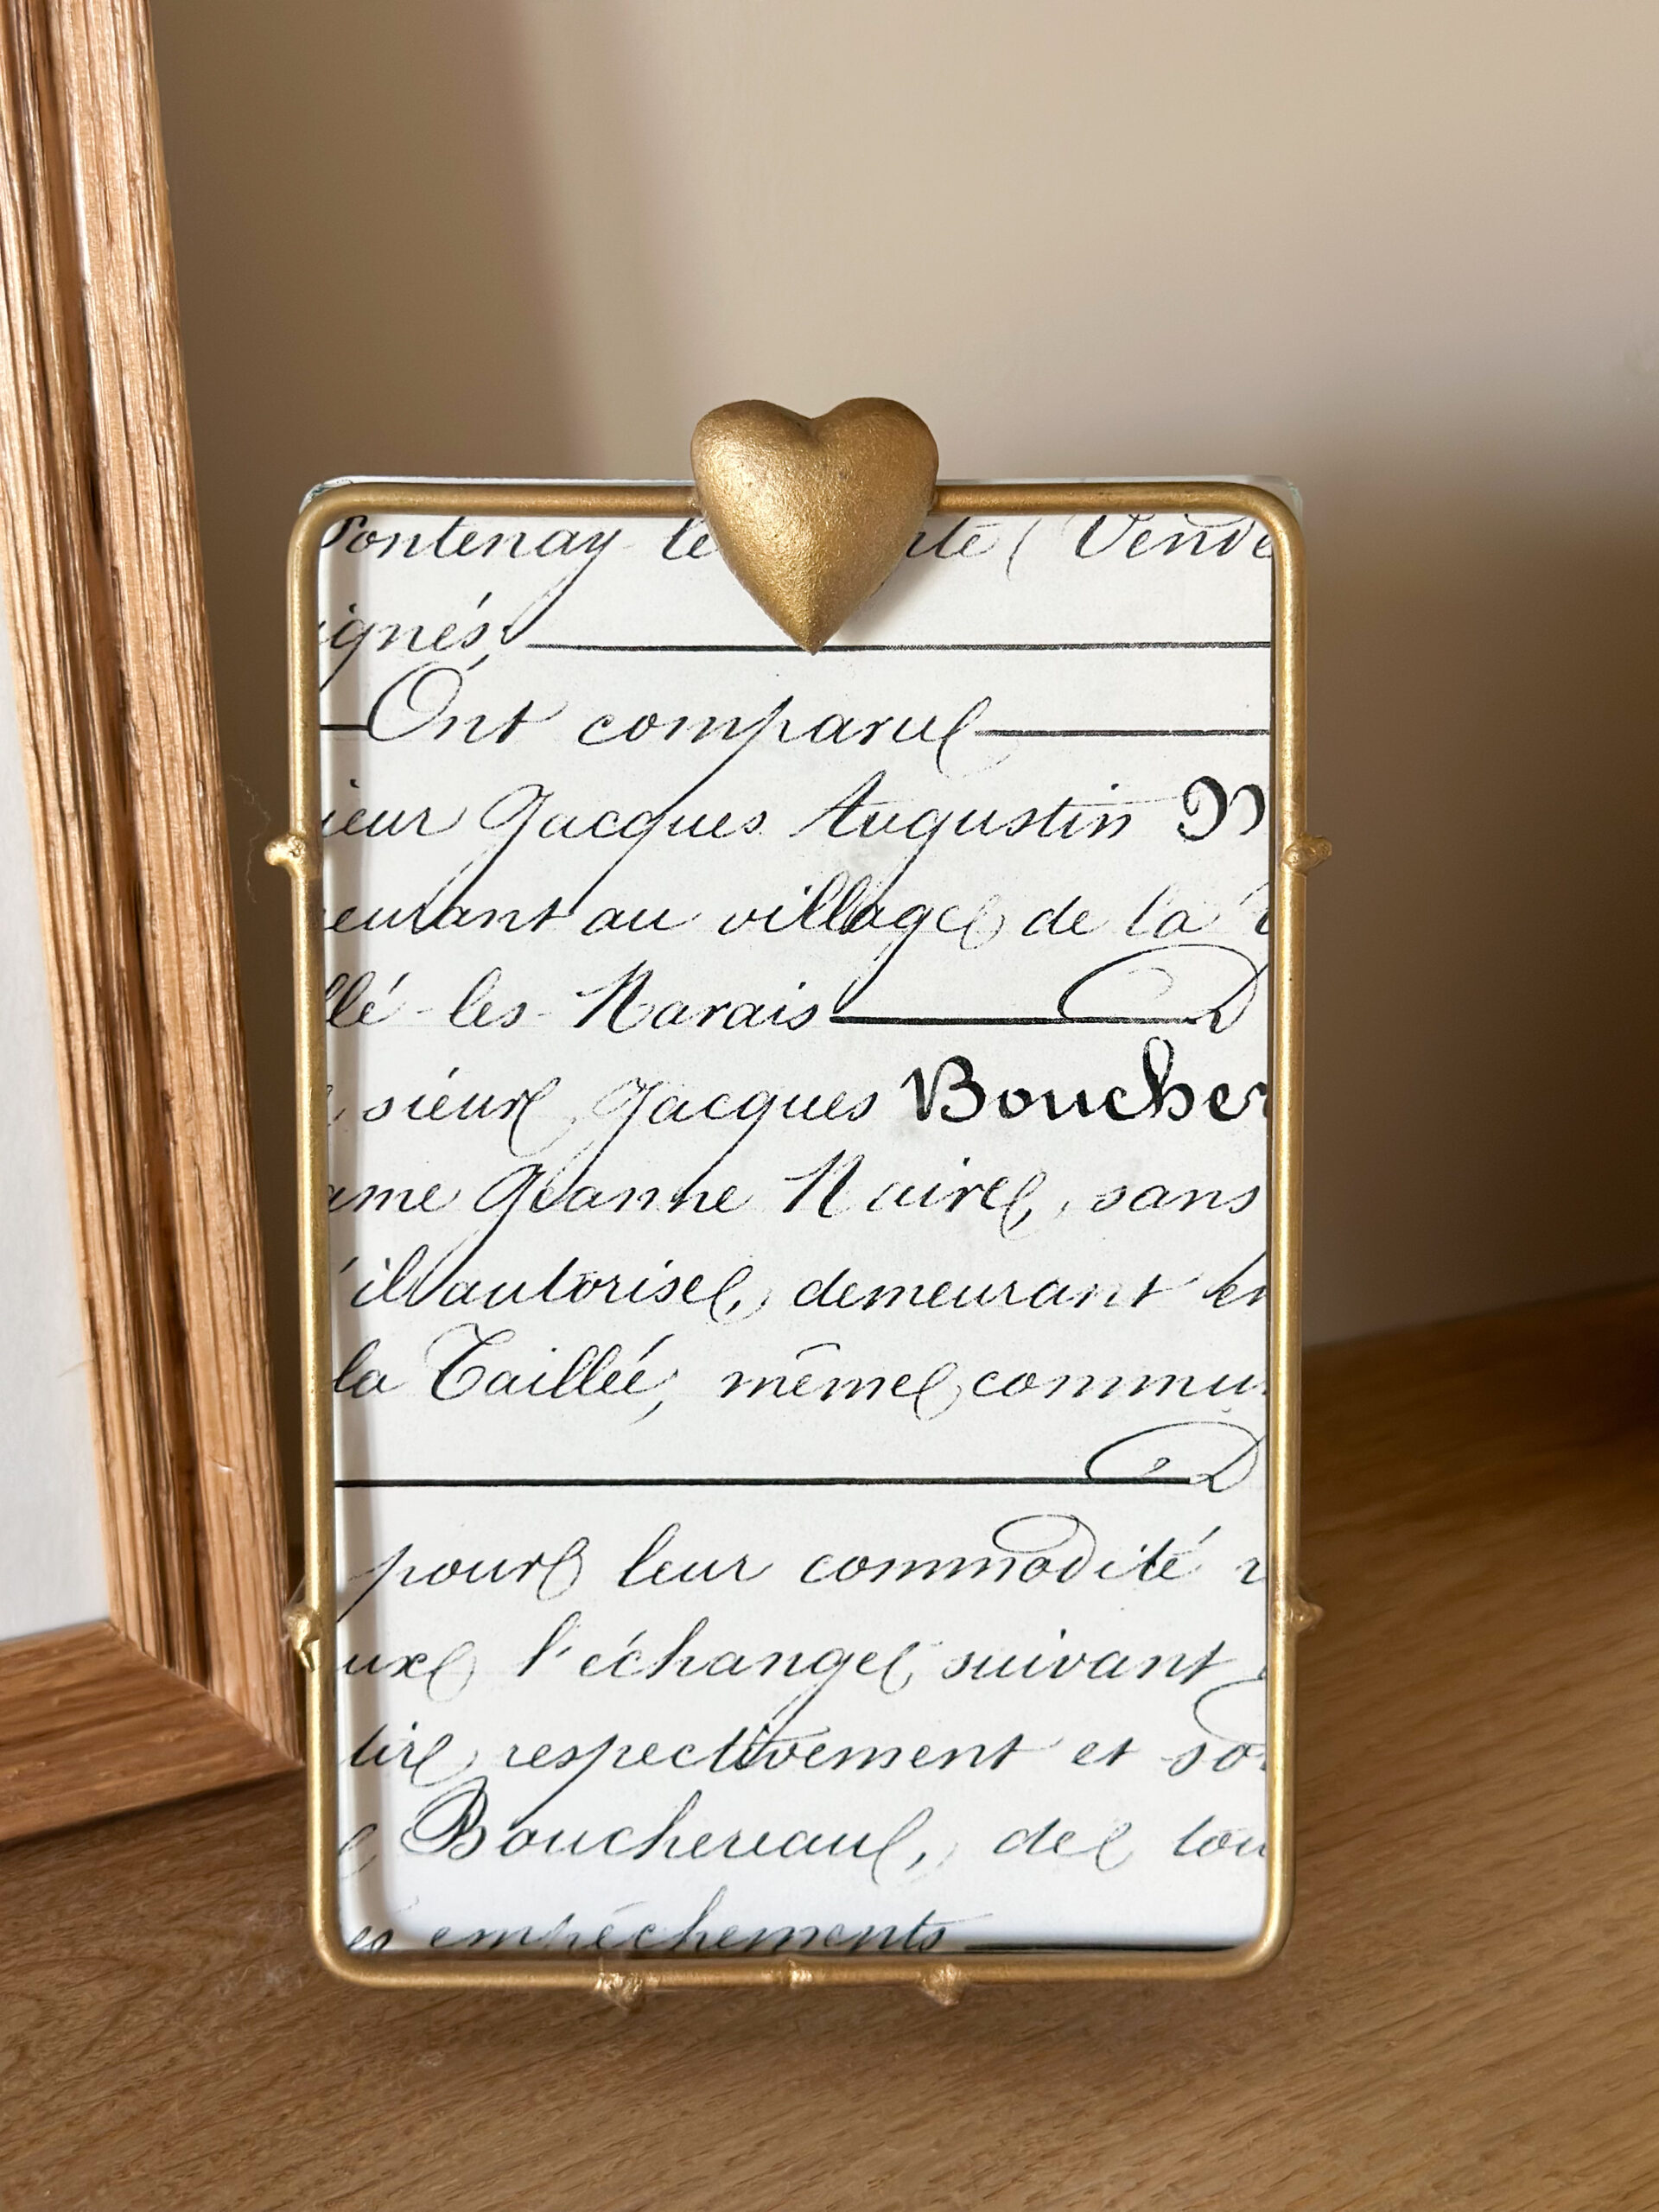 Fontenay le te (Vende
ignés,
Ont comparu
ieur Jacques Augustin
eurant au village de la
llé-les-Marais
sieur Jacques Boucher
ame Jeanne Naire, sans
'il autorise, demeurant en
la Taillée, même commu
pour leur commodité
ux l'échange suivant
tire respectivement et so
Bouchereau, de tou
es empêchements